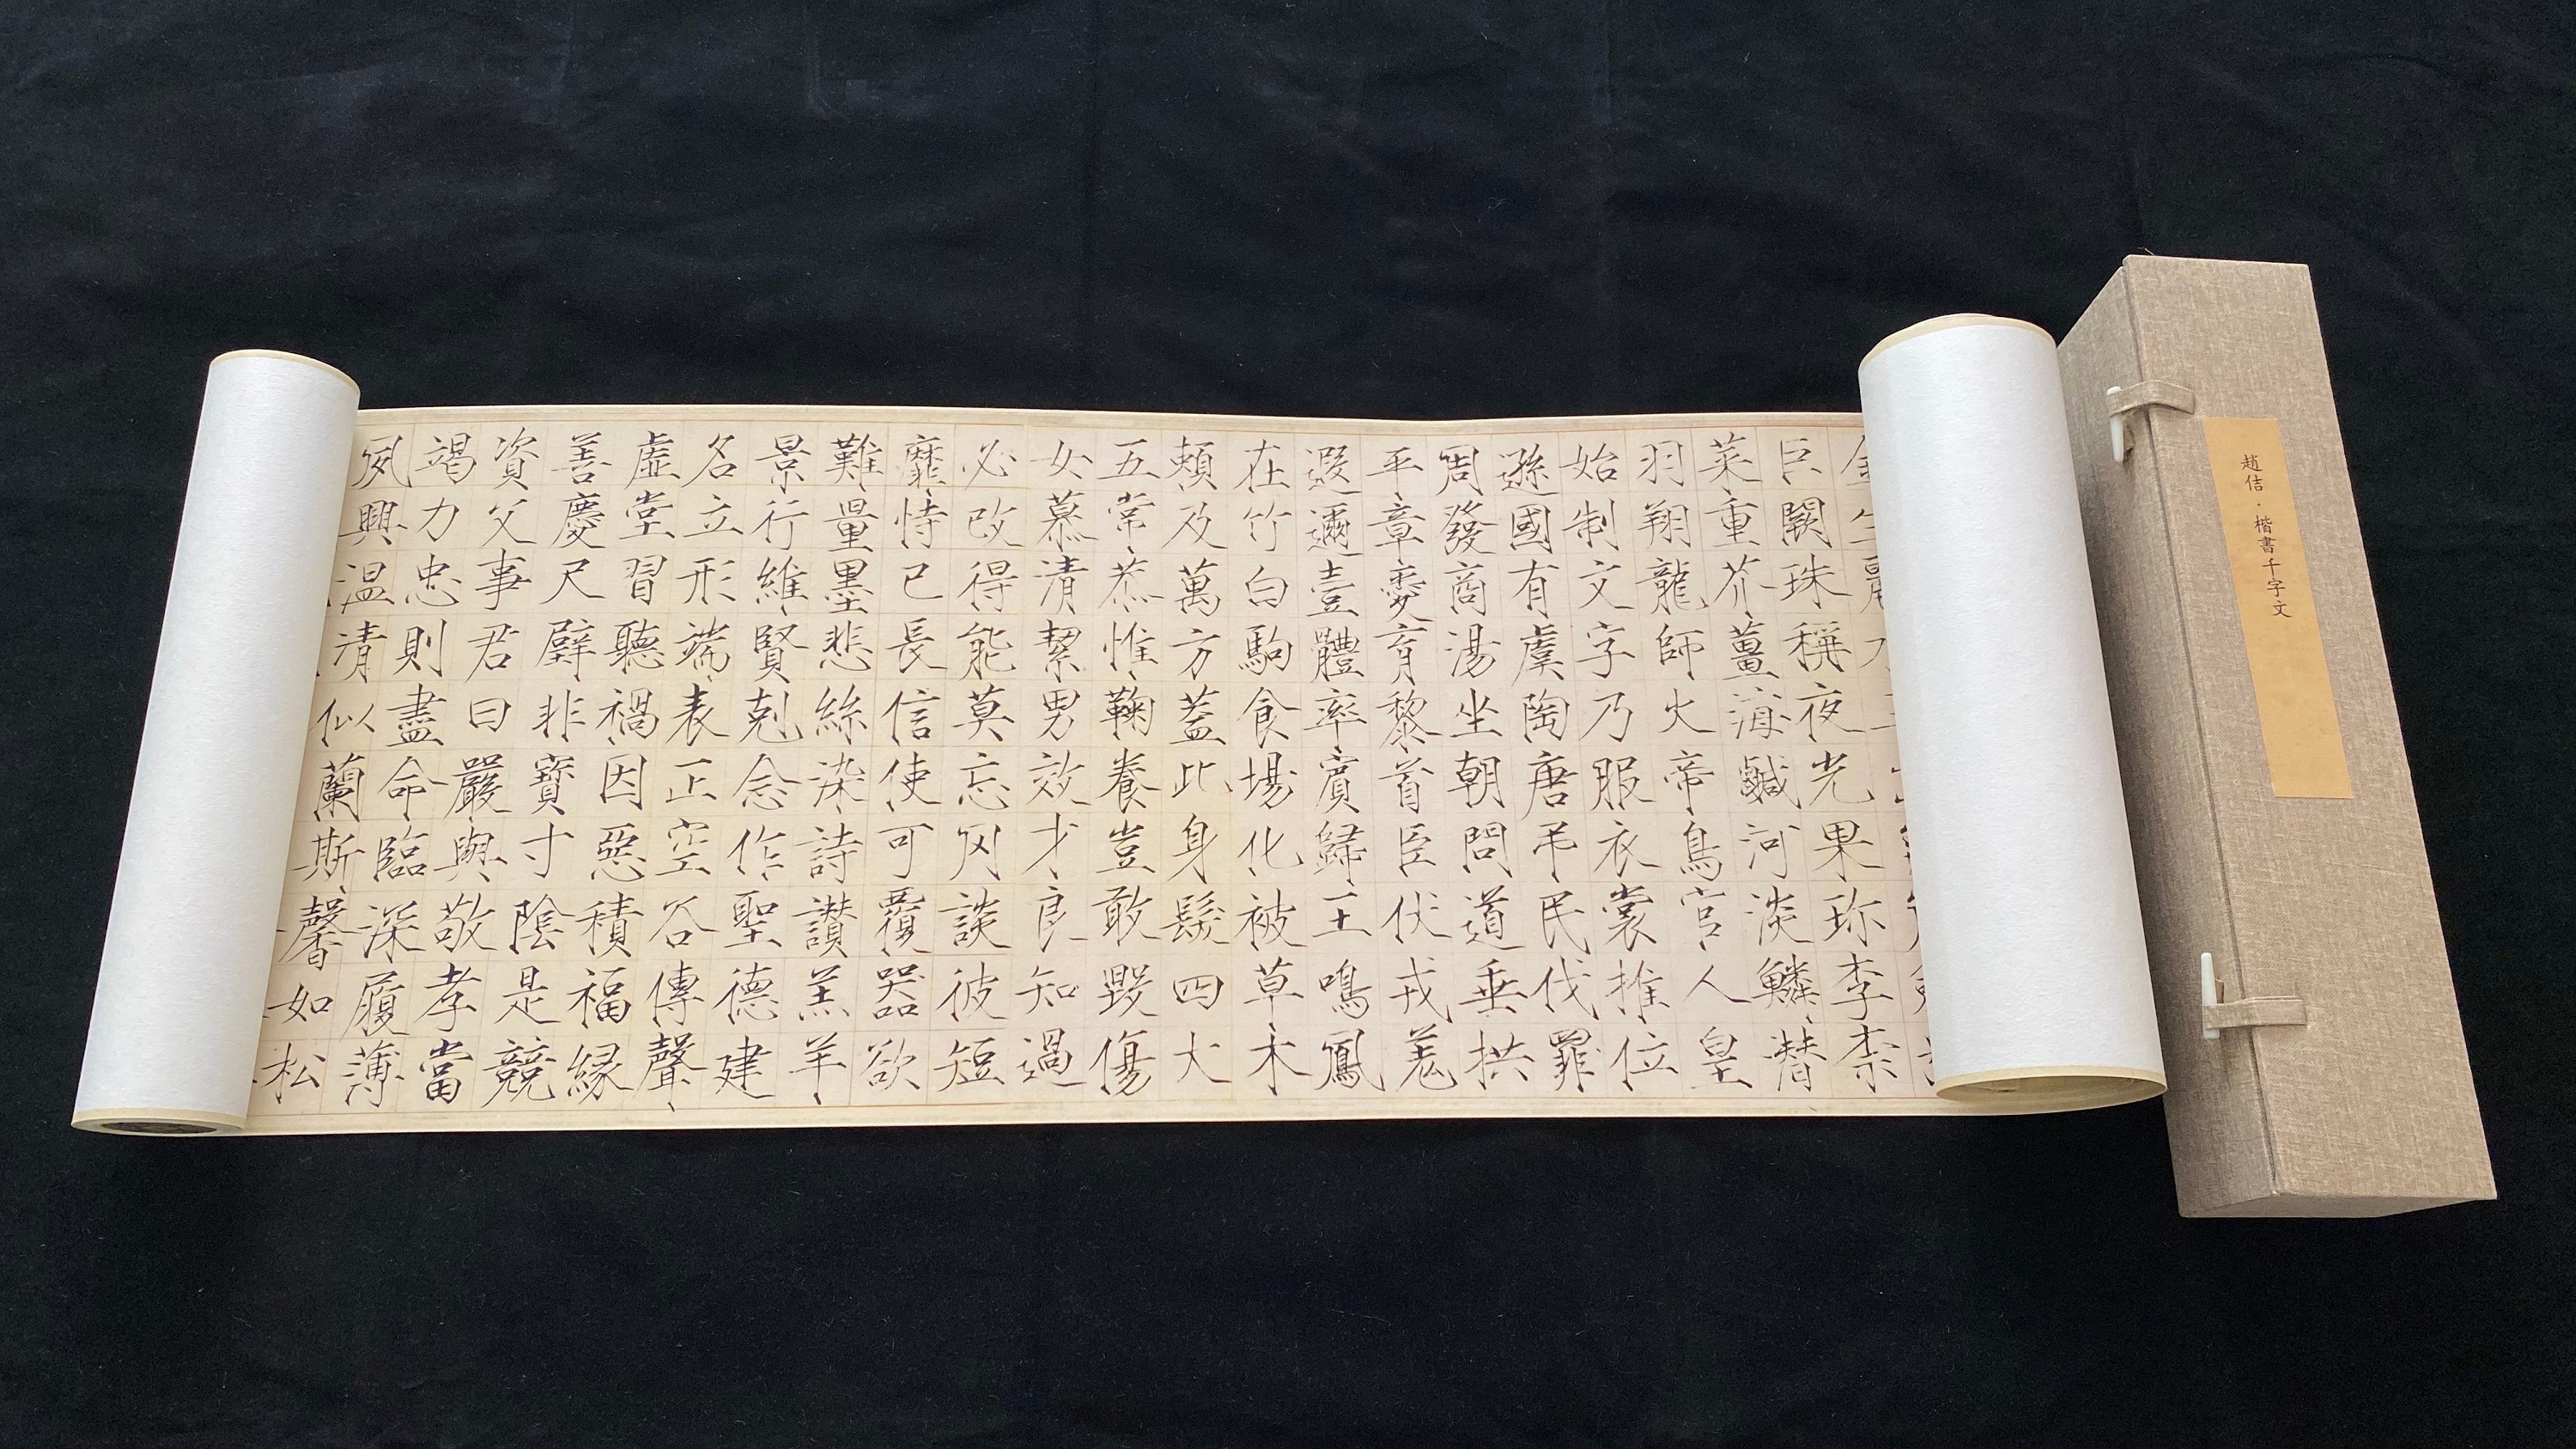 趙佶·楷書千字文
巨闕珠稱夜光果珎李柰
菜重芥薑海鹹河淡鱗潛
羽翔龍師火帝鳥官人皇
始制文字乃服衣裳推位
遜國有虞陶唐弔民伐罪
周發商湯坐朝問道垂拱
平章愛育黎首臣伏戎羌
遐邇壹體率賓歸王鳴鳳
在竹白駒食場化被草木
賴及萬方蓋此身髮四大
五常恭惟鞠養豈敢毀傷
女慕清絜男效才良知過
必改得能莫忘罔談彼短
靡恃己長信使可覆器欲
難量墨悲絲染詩讃羔羊
景行維賢剋念作聖德建
名立形端表正空谷傳聲
虛堂習聽禍因惡積福緣
善慶尺璧非寶寸陰是競
資父事君曰嚴與敬孝當
竭力忠則盡命臨深履薄
夙興温清似蘭斯馨如松